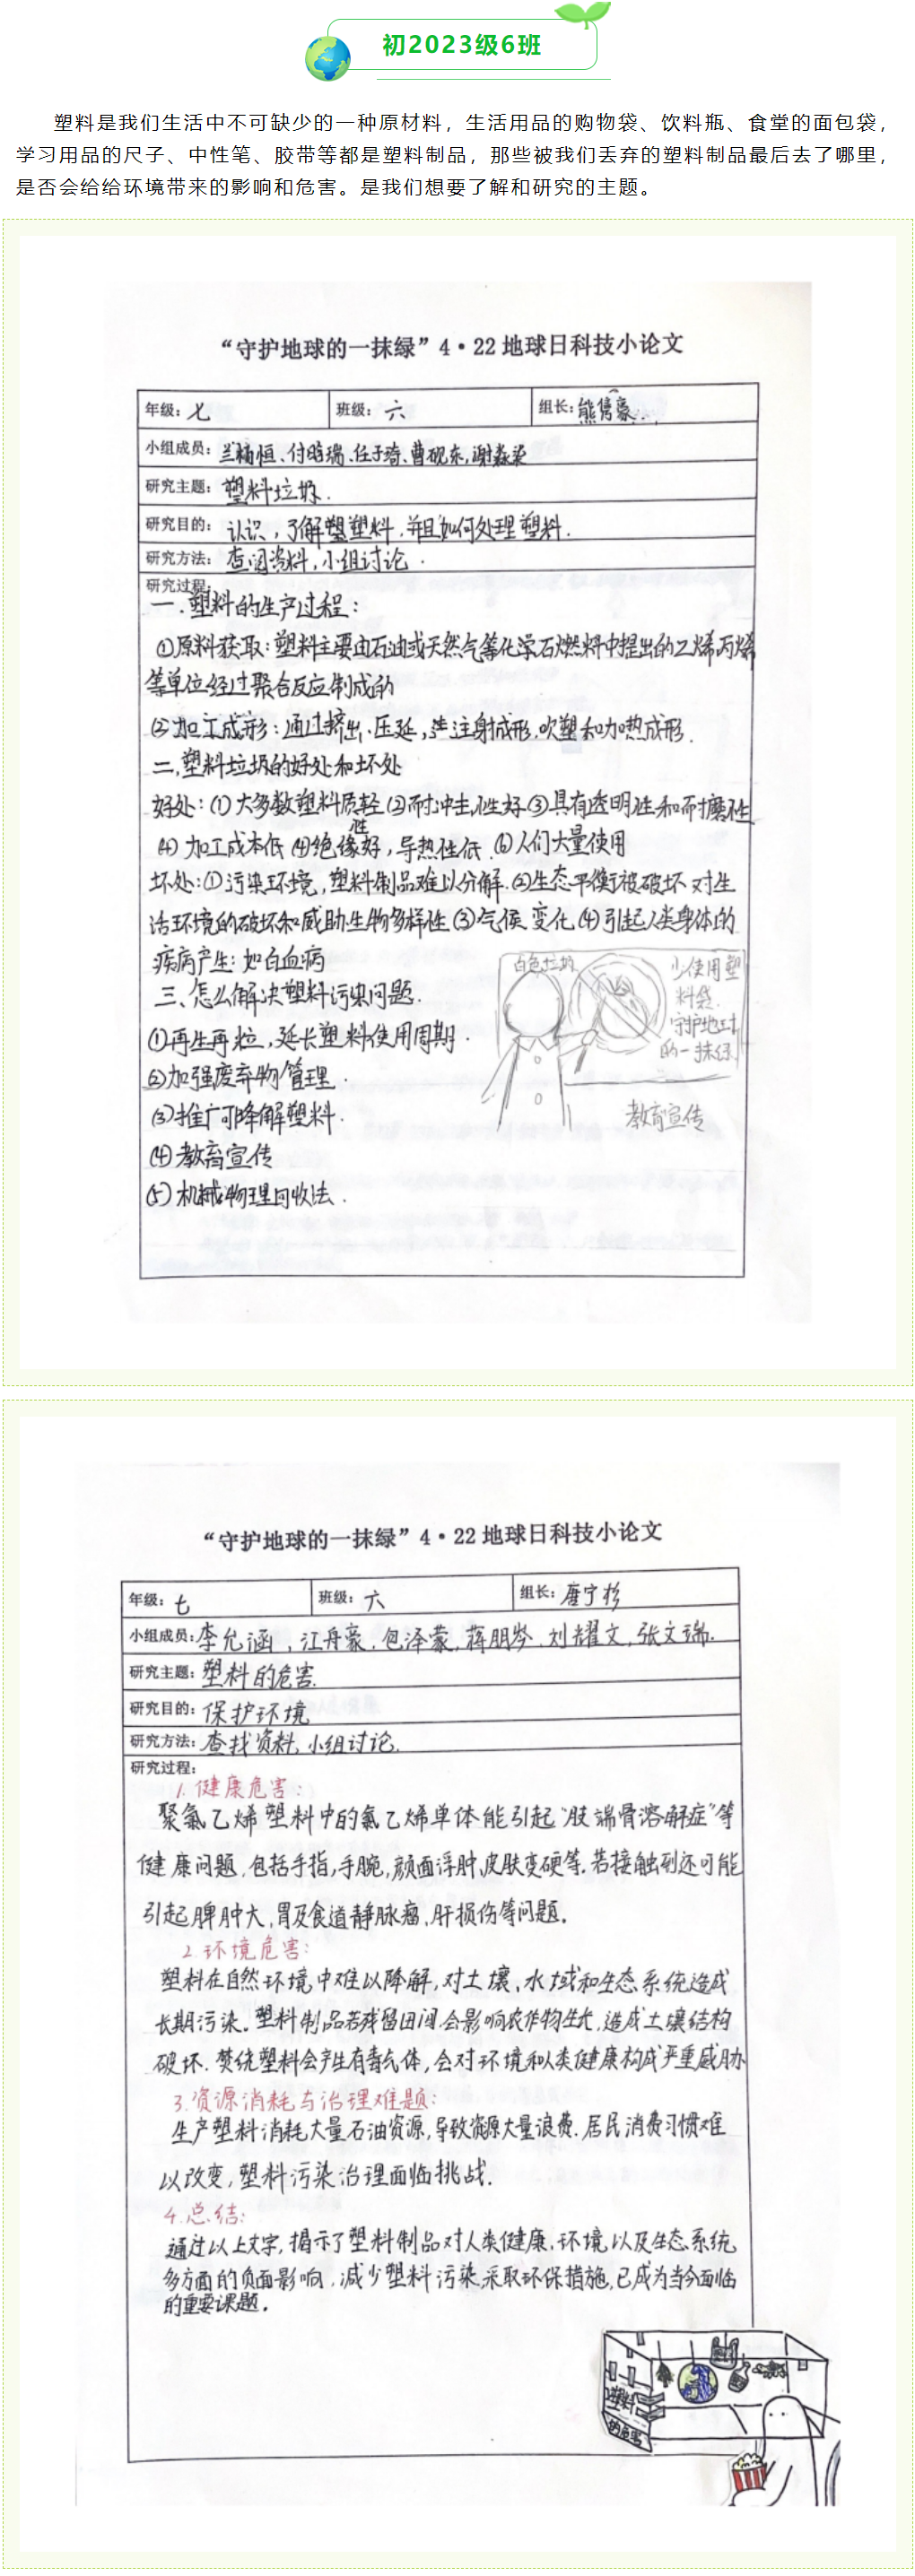 初2023级6班
塑料是我们生活中不可缺少的一种原材料，生活用品的购物袋、饮料瓶、食堂的面包袋，
学习用品的尺子、中性笔、胶带等都是塑料制品，那些被我们丢弃的塑料制品最后去了哪里，
是否会给给环境带来的影响和危害。是我们想要了解和研究的主题。
“守护地球的一抹绿”4·22地球日科技小论文
年级：七 班级：六 组长：熊隽豪
小组成员：
研究主题：塑料垃圾.
研究目的：认识，了解塑料.并且如何处理塑料.
研究方法：查阅资料,小组讨论.
研究过程：
一.塑料的生产过程：
①原料获取：塑料主要由石油或天然气等化学石燃料中提出的乙烯丙烯
等单位经过聚合反应制成的
②加工成形：通过挤出、压延，注射成形.吹塑和加热成形.
二,塑料垃圾的好处和坏处
好处：①大多数塑料质轻②耐冲击性好③具有透明性和耐磨性
④加工成本低④绝缘性好，导热性低.⑥人们大量使用
坏处：①污染环境，塑料制品难以分解.②生态平衡被破坏对生
活环境的破坏和威胁生物多样性③气候变化④引起人类身体的
疾病产生：如白血病
三、怎么解决塑料污染问题.
①再生再粒，延长塑料使用周期.
②加强废弃物管理.
③推广可降解塑料.
④教育宣传
⑤机械物理回收法.
白色垃圾
少使用塑
料袋.
守护地球
的一抹绿
教育宣传
“守护地球的一抹绿”4·22地球日科技小论文
年级：七 班级：六 组长：唐宁杉
小组成员：李允涵、江丹豪.包泽蒙,蒋朋岑.刘耀文,张文瑞.
研究主题：塑料的危害.
研究目的：保护环境
研究方法：查找资料,小组讨论.
研究过程：
1.健康危害：
聚氯乙烯塑料中的氯乙烯单体能引起“肢端骨溶解症”等
健康问题.包括手指,手腕,颜面浮肿,皮肤变硬等.若接触到还可能
引起脾肿大,胃及食道静脉瘤,肝损伤等问题。
2.环境危害：
塑料在自然环境中难以降解,对土壤,水域和生态系统造成
长期污染.塑料制品若残留田间会影响农作物生长,造成土壤结构
破坏.焚烧塑料会产生有毒气体,会对环境和人类健康构成严重威胁
3.资源消耗与治理难题：
生产塑料消耗大量石油资源,导致资源大量浪费.居民消费习惯难
以改变,塑料污染治理面临挑战.
4.总结：
通过以上文字,揭示了塑料制品对人类健康.环境以及生态系统
多方面的负面影响.减少塑料污染采取环保措施,已成为当今面临
的重要课题。
塑料
的危害